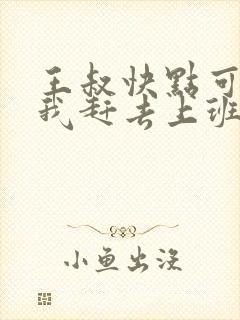 王叔快點可
我赶去上班
小鱼出没